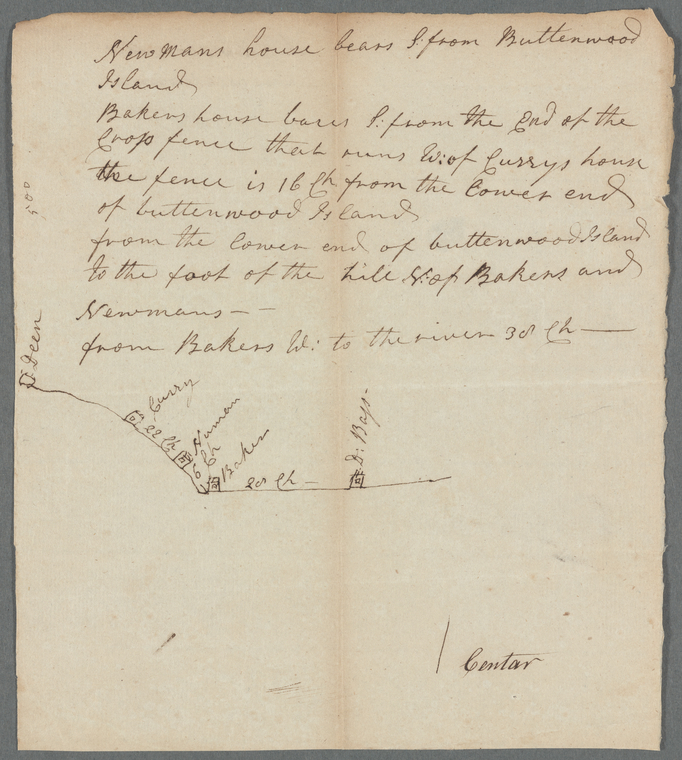 Newmans house bears S: from Buttenwood
Island
Bakers house bares S: from the End of the
Crop fence that runs W: of Currys house
the fence is 16 Ch from the Lower end
of buttenwood Island
from the lower end of buttenwood Island
to the foot of the hill N: of Bakers and
Newmans - -
from Bakers W: to the river 38 Ch —
500
D Deen
Curry
22 Ch
Numan
6 Ch
Baker
28 Ch —
D: Bap
Centar